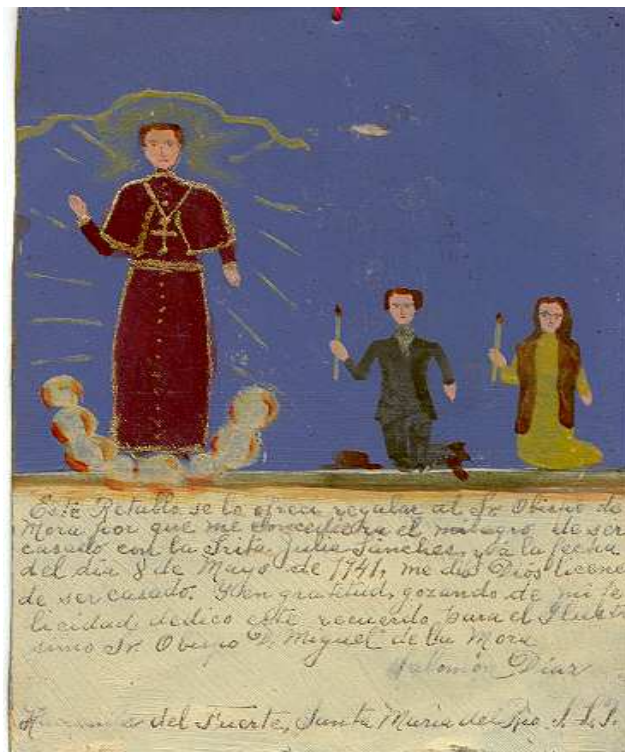 Este Retablo se lo ofreci regular al Sr. Obispo de
Mora por que me concediera el milagro de ser
casado con la Srita. Julia Sanches, ya la fecha
del dia 8 de Mayo de 1941, me dio Dios licene
de ser casado. Y en gratitud, gozando de mi fe
licidad dedico este recuerdo para el Ilust
simo Sr. Obispo D. Miguel de la Mora
Salomón Díaz
del Fuerte, Santa Maria del Rio. S.L.P.